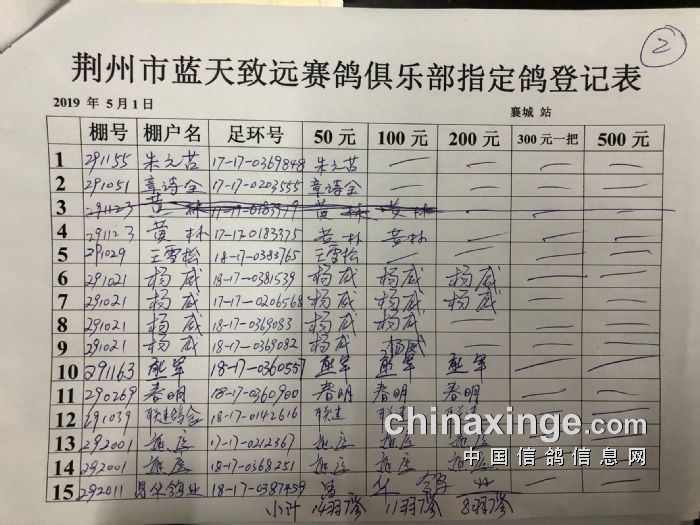 ②
荆州市蓝天致远赛鸽俱乐部指定鸽登记表
2019 年 5月1日 襄城 站
棚号 棚户名 足环号 50元 100元 200元 300元一把 500元
1 291155 17-17-0369848 — — — —
2 291051 章诗全 17-17-0203555 章诗全 — — — —
3 291123 黄林 17-17-0183579 黄林 黄林 — — —
4 291123 黄林 17-17-0183375 黄林 黄林 — — —
5 291029 王雪松 18-17-0383765 王雪松 — — — —
6 291021 杨威 18-17-0381539 杨威 杨威 杨威 — —
7 291021 杨威 17-17-0206568 杨威 杨威 杨威 — —
8 291021 杨威 18-17-0369083 杨威 杨威 — — —
9 291021 杨威 18-17-0369082 杨威 杨威 — — —
10 291163 熊军 18-17-0360557 熊军 熊军 熊军 — —
11 290269 春明 18-17-0360900 春明 春明 春明 — —
12 291039 18-17-0142616 联建 联建 联建 — —
13 292001 17-17-0212367 — —
14 292001 18-17-0368251 — —
15 292011 昌华鸽业 18-17-0387459 昌 华 鸽 业 —
小计 14羽 11羽 8羽
chinaxinge.com
中国信鸽信息网